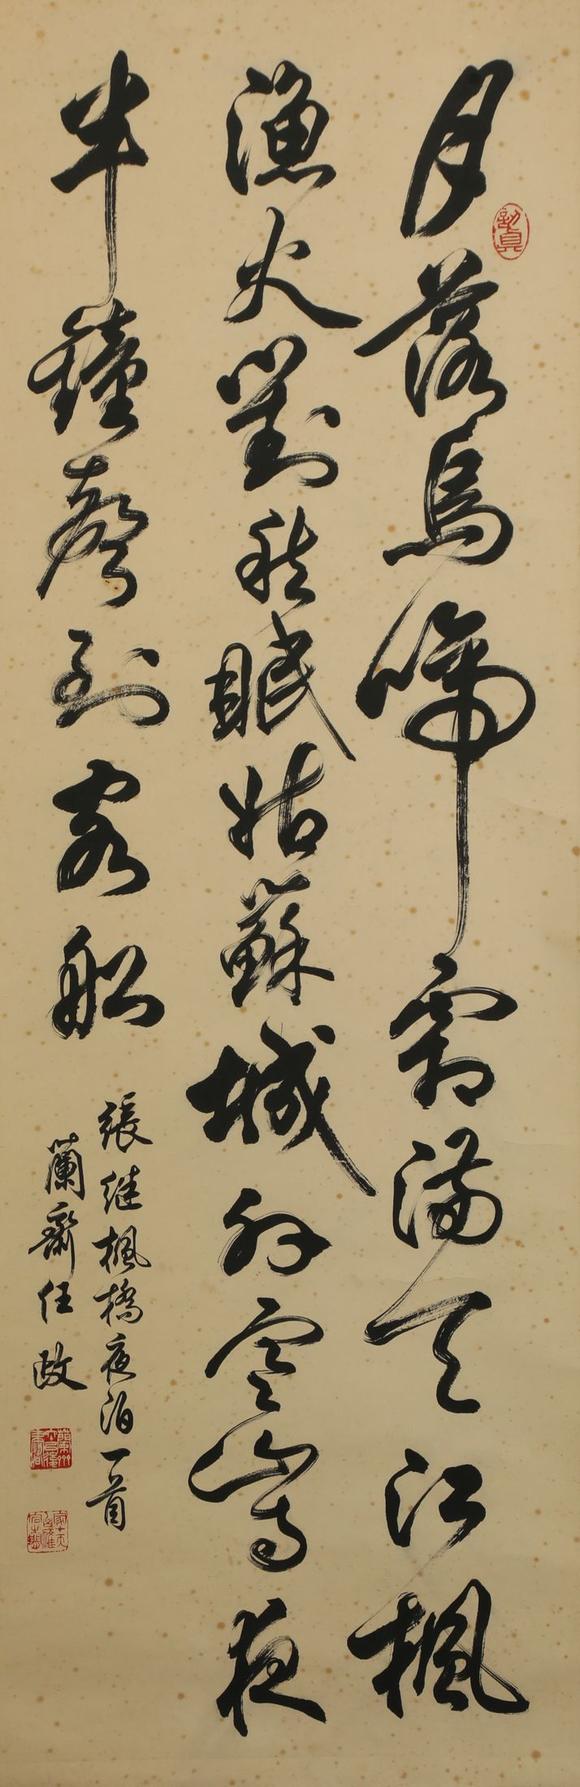 月落烏啼霜滿天江楓
漁火對愁眠姑蘇城外寒山寺夜
半鐘聲到客船
張继楓橋夜泊一首
蘭齋任政